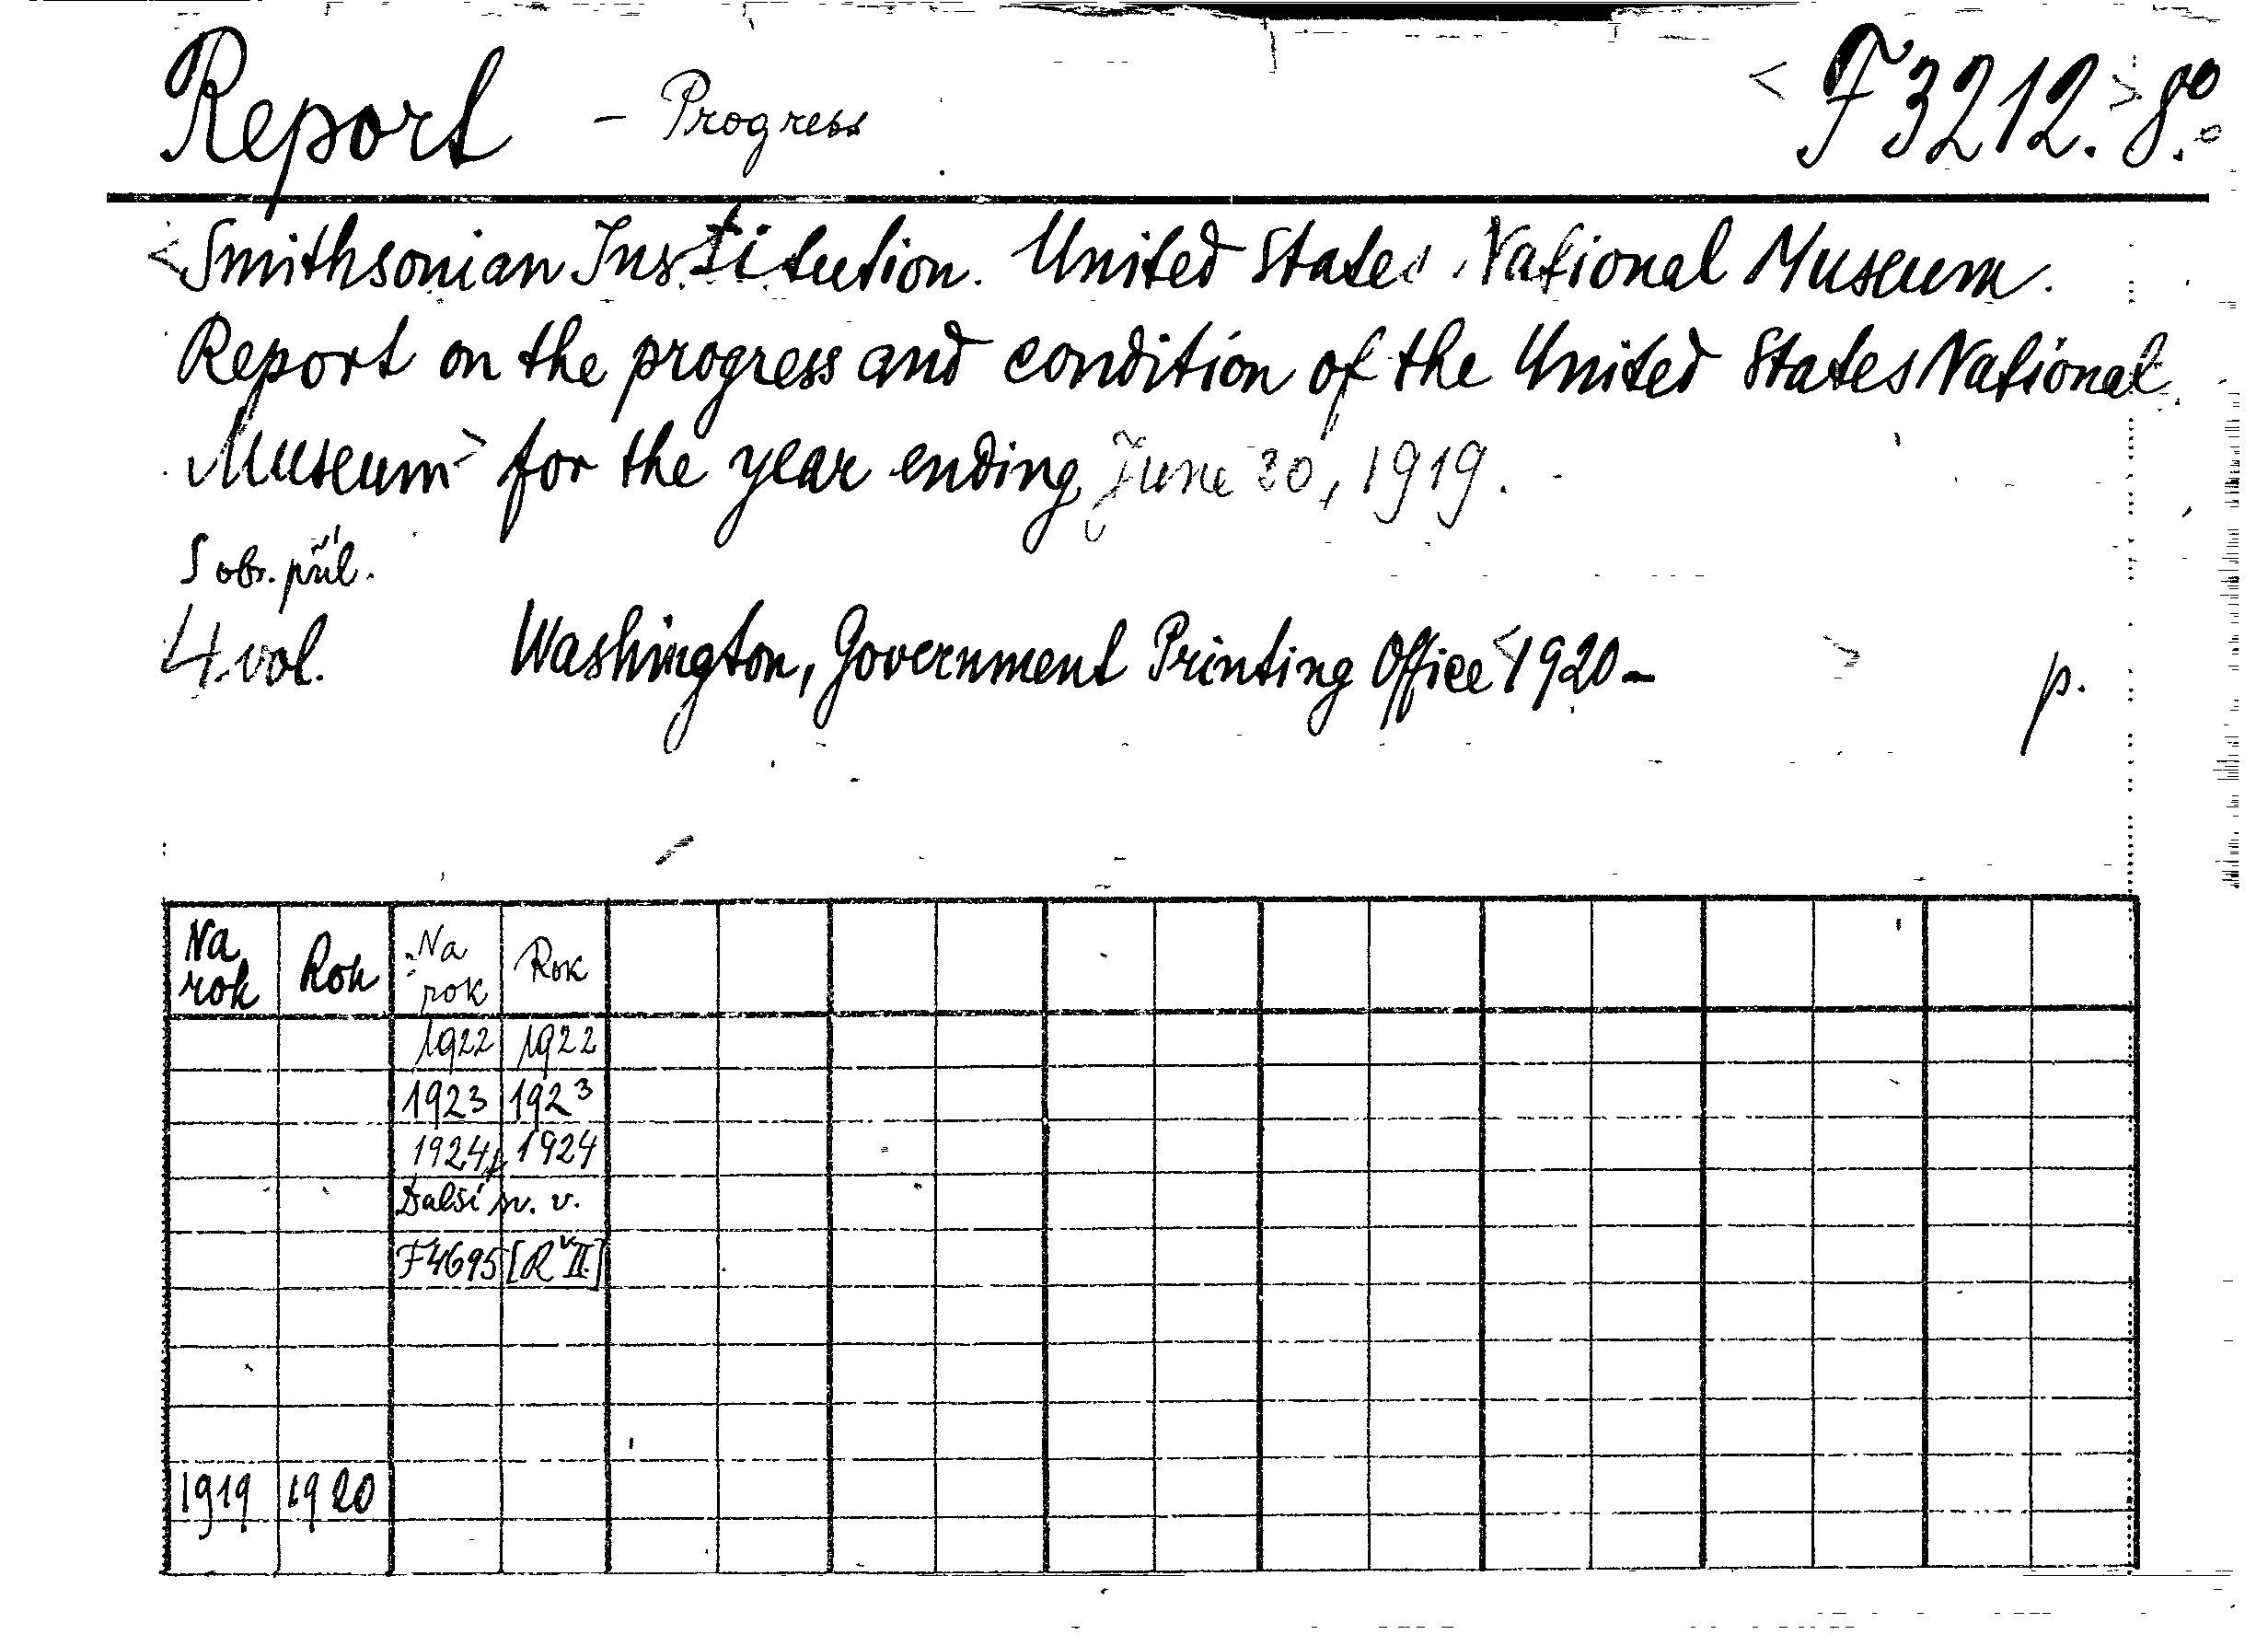 Report - Progress < F 3212. > 8°.
<Smithsonian Institution. United States National Museum.
Report on the progress and condition of the United States National
Museum> for the year ending June 30, 1919.
S obr. příl.
4 vol. Washington, Government Printing Office <1920- > p.
Na rok Rok Na rok Rok
1922 1922
1923 1923
1924 1924
Další sv. v.
F4695 [ŘII]
1919 1920